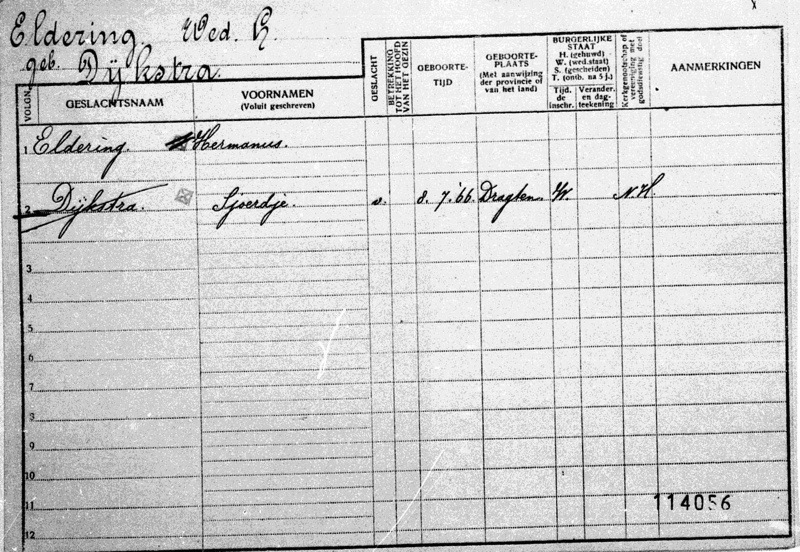 Eldering. Wed. H.
geb. Dijkstra.
VOLGN.
GESLACHTSNAAM
VOORNAMEN
(Voluit geschreven)
GESLACHT
BETREKKING TOT HET HOOFD VAN HET GEZIN
GEBOORTE-
TIJD
GEBOORTE-
PLAATS
(Met aanwijzing
der provincie of
van het land)
BURGERLIJKE
STAAT
H. (gehuwd)
W. (wed.staat)
S. (gescheiden)
T. (ontb. na 5 j.)
Tijd.
de
inschr.
Verander.
en dag-
teekening
Kerkgenootschap of vereeniging met godsdienstig doel
AANMERKINGEN
1 Eldering. Hermanus.
2 Dijkstra. Sjoerdje. v. 8. 7. '66 Dragten. W. N.H.
3
4
5
6
7
8
9
10
11
114056
12